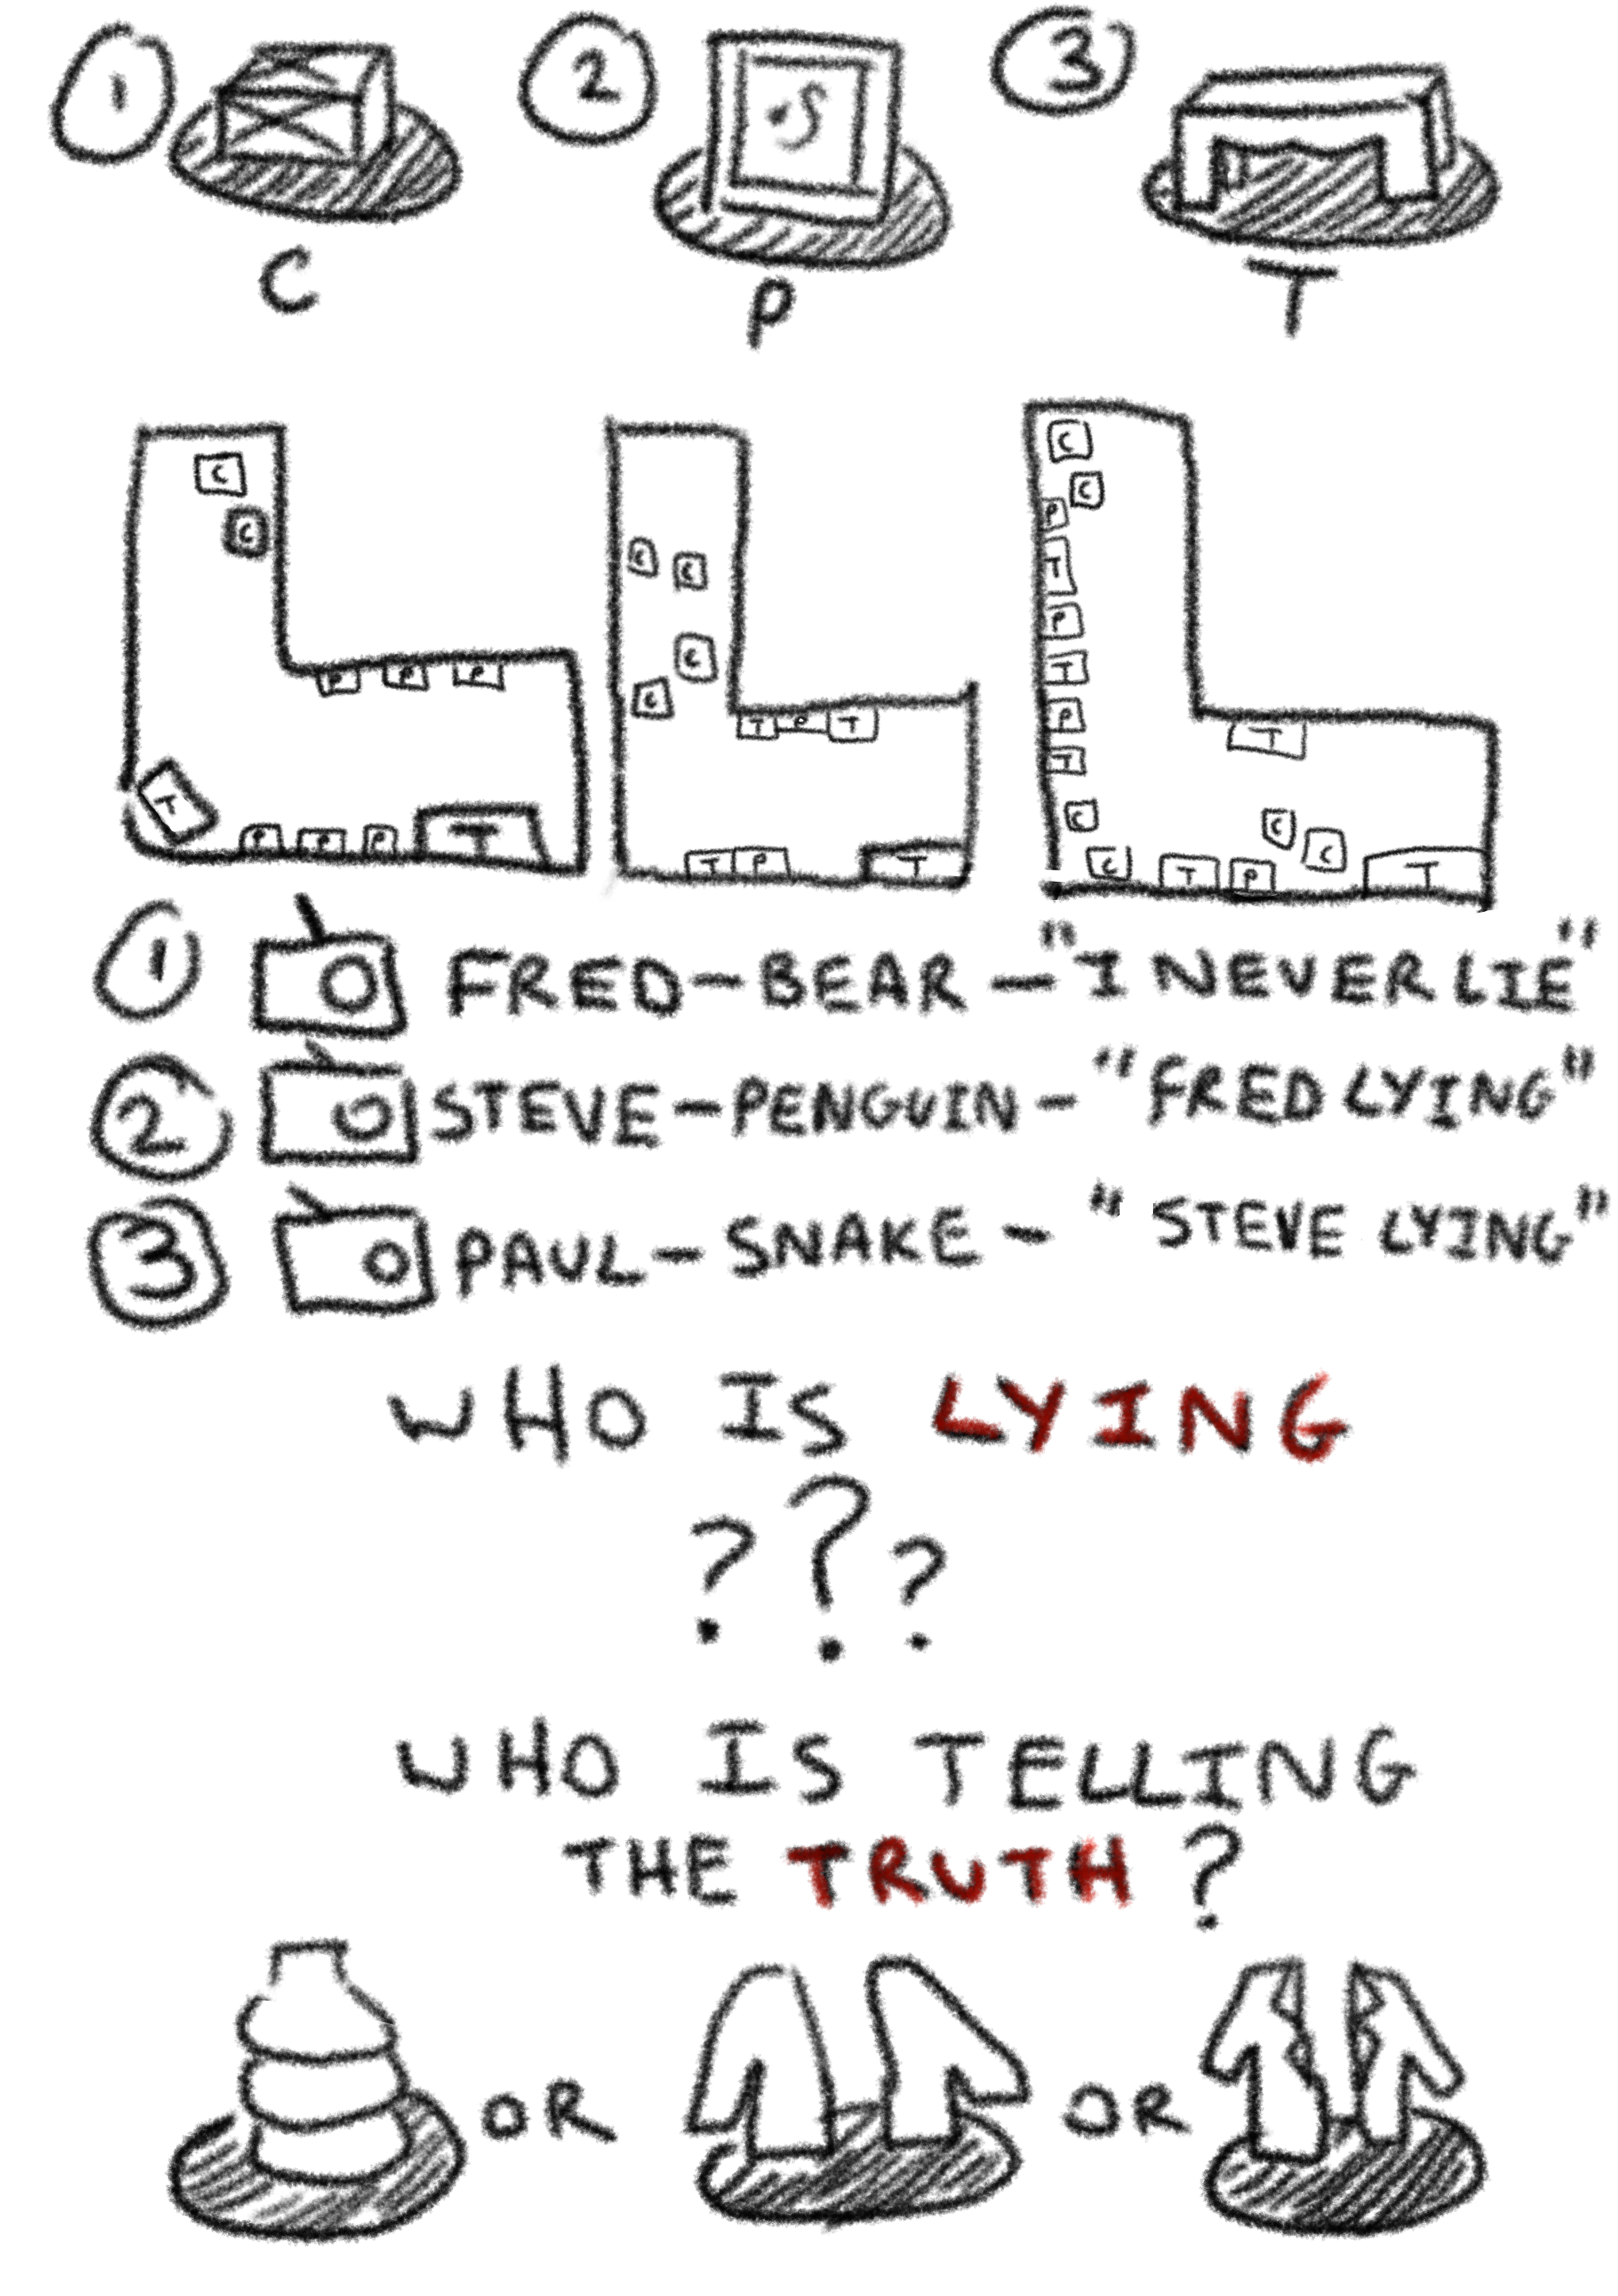 1 2 3
S
C P T
C
C
P P P
T
P P P T
C C
C
C
T P T
T P T
C
C
P
T
P
T
P
T
C
T
C
C
C T P T
1 FRED-BEAR-"I NEVER LIE"
2 STEVE-PENGUIN-"FRED LYING"
3 PAUL-SNAKE-"STEVE LYING"
WHO IS LYING
???
WHO IS TELLING
THE TRUTH?
OR OR